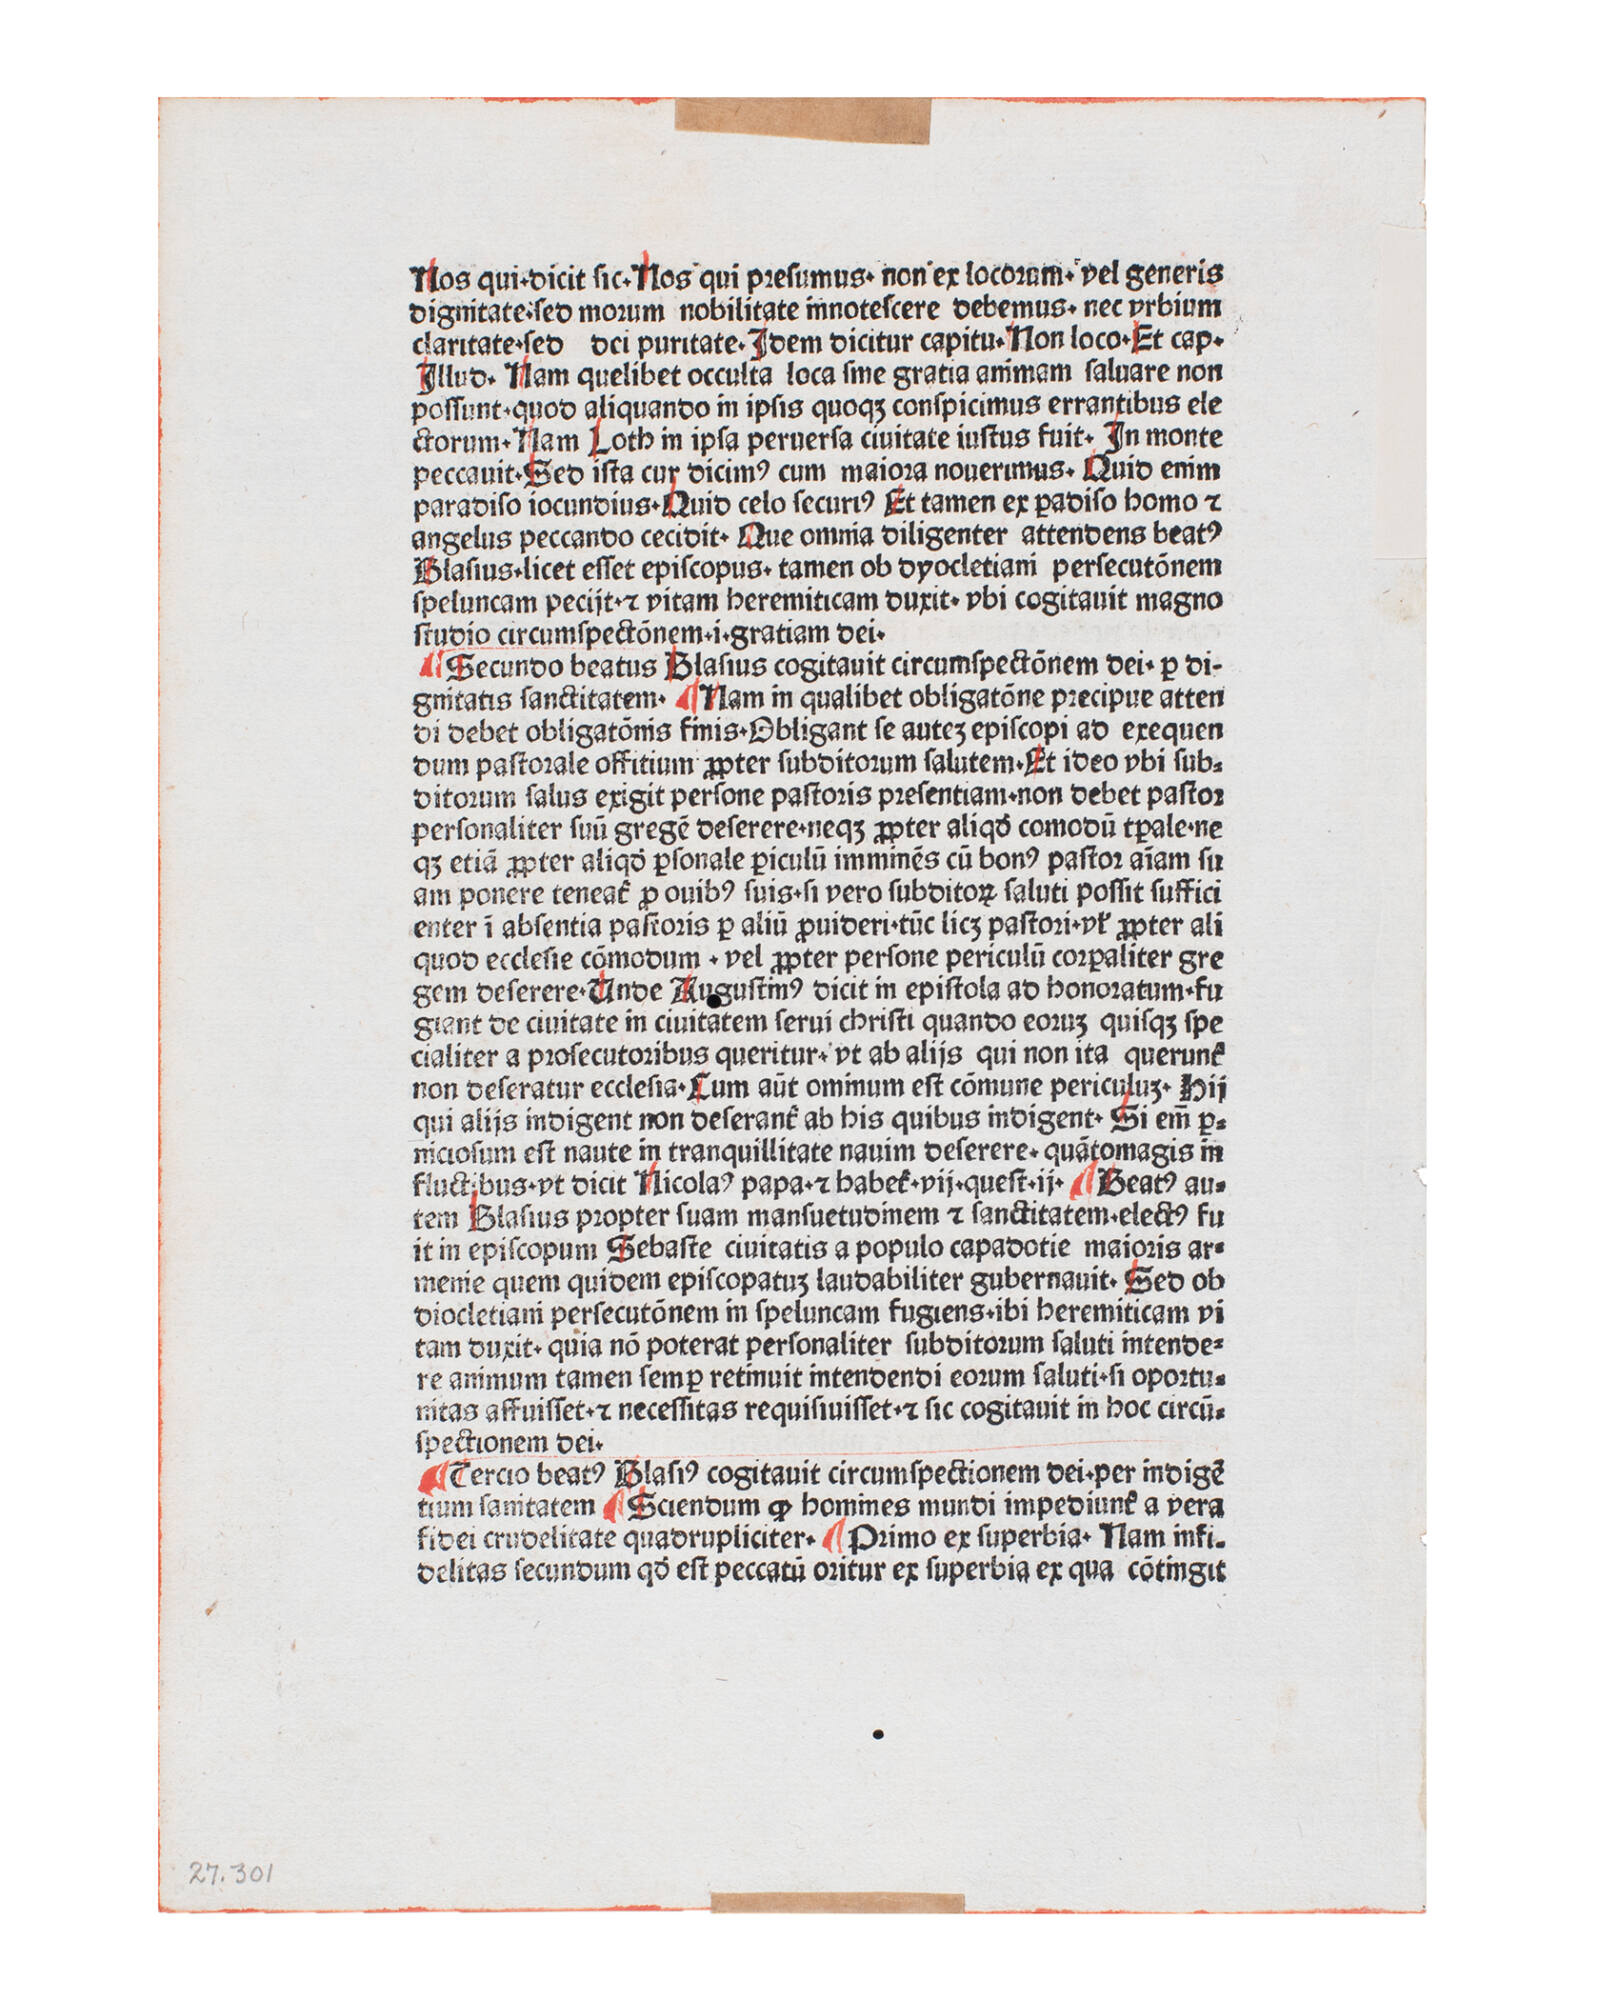 Nos qui·dicit ſic·Nos qui preſumus· non ex locorum· vel generis
dignitate·ſed morum nobilitate innoteſcere debemus· nec vrbium
claritate·ſed dei puritate· Idem dicitur capitu· Non loco· Et cap·
Illud· Nam quelibet occulta loca ſine gratia animam ſaluare non
poſſunt·quod aliquando in ipſis quoqꝫ conſpicimus errantibus ele
ctorum· Nam Loth in ipſa peruerſa ciuitate iuſtus fuit· In monte
peccauit·Sed iſta cur dicimꝰ cum maiora nouerimus· Quid enim
paradiſo iocundius·Quid celo ſecuriꝰ Et tamen ex ꝑadiſo homo ⁊
angelus peccando cecidit· Que omnia diligenter attendens beatꝰ
Blaſius·licet eſſet epiſcopus· tamen ob dyocletiani perſecutōnem
ſpeluncam pecijt·⁊ vitam heremiticam duxit· vbi cogitauit magno
ſtudio circumſpectōnem·i·gratiam dei·
¶ Secundo beatus Blaſius cogitauit circumſpectōnem dei· ꝑ di-
gnitatis ſanctitatem· ¶ Nam in qualibet obligatōne precipue atten
di debet obligatōnis finis·Obligant ſe auteꝫ epiſcopi ad exequen
dum paſtorale offitium ꝓpter ſubditorum ſalutem·Et ideo vbi ſub-
ditorum ſalus exigit perſone paſtoris preſentiam·non debet paſtor
perſonaliter ſuū gregē deſerere·neqꝫ ꝓpter aliqđ comodū tꝑale·ne
qꝫ etiā ꝓpter aliqđ ꝑſonale ꝑiculū imminēs cū bonꝰ paſtor aīam ſu
am ponere teneat᷑ ꝓ ouibꝰ ſuis·ſi vero ſubditoꝝ ſaluti poſſit ſuffici
enter ī abſentia paſtoris ꝑ aliū ꝓuideri·tūc licꝫ paſtori·vł ꝓpter ali
quod eccleſie cōmodum · vel ꝓpter perſone periculū corꝑaliter gre
gem deſerere·Unde Auguſtinꝰ dicit in epiſtola ad honoratum·fu
giant de ciuitate in ciuitatem ſerui chriſti quando eoruꝫ quiſqꝫ ſpe
cialiter a proſecutoribus queritur· vt ab alijs qui non ita querunt᷑
non deſeratur eccleſia·Cum aūt ominum eſt cōmune periculuꝫ· Hij
qui alijs indigent non deſerant᷑ ab his quibus indigent· Si em̄ ꝑ-
nicioſum eſt naute in tranquillitate nauim deſerere· quātomagis in
fluctibus·vt dicit Nicolaꝰ papa·⁊ habet᷑·vij·queſt·ij· ¶ Beatꝰ au-
tem Blaſius propter ſuam manſuetudinem ⁊ ſanctitatem·electꝰ fu
it in epiſcopum Sebaſte ciuitatis a populo capadotie maioris ar-
menie quem quidem epiſcopatuꝫ laudabiliter gubernauit· Sed ob
diocletiani perſecutōnem in ſpeluncam fugiens·ibi heremiticam vi
tam duxit· quia nō poterat perſonaliter ſubditorum ſaluti intende-
re animum tamen ſemꝑ retinuit intendendi eorum ſaluti·ſi oportu-
nitas affuiſſet·⁊ neceſſitas requiſiuiſſet·⁊ ſic cogitauit in hoc circū-
ſpectionem dei·
¶ Tercio beatꝰ Blaſiꝰ cogitauit circumſpectionem dei·per indigē
tium ſanitatem ¶ Sciendum ꝙ homines mundi impediunt᷑ a vera
fidei crudelitate quadrupliciter· ¶ Primo ex ſuperbia· Nam infi-
delitas ſecundum qđ eſt peccatū oritur ex ſuperbia ex qua cōtingit
27.301